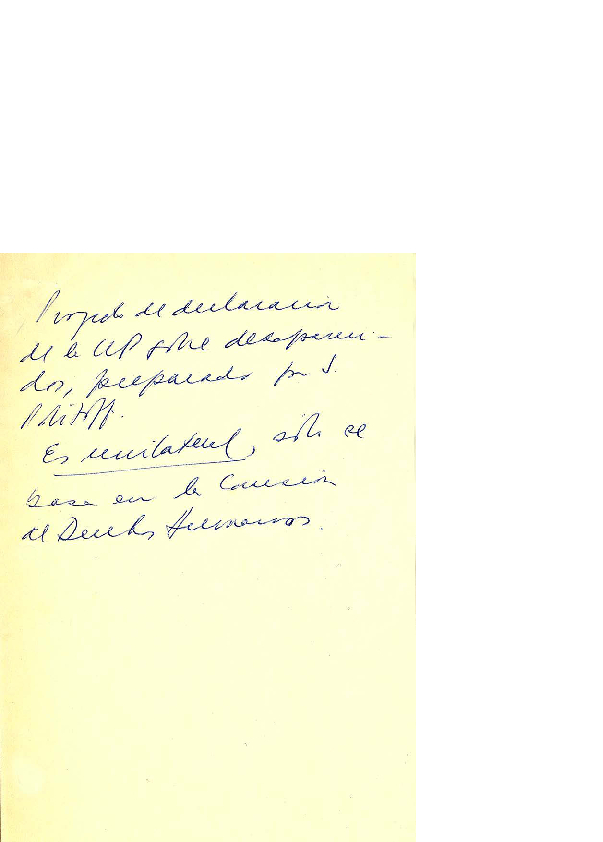 Proyecto de declaración
de la UP sobre desapareci-
dos, preparado por J.
Es unilateral, sólo se
basa en la Comisión
de Derechos Humanos.